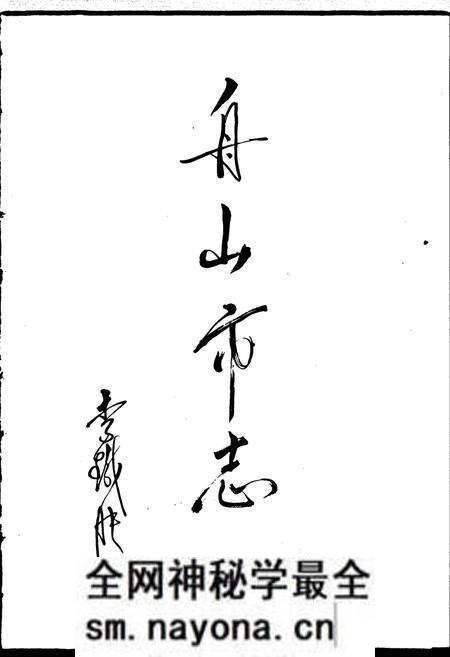 舟山市志
李铁
全网神秘学最全
sm.nayona.cn